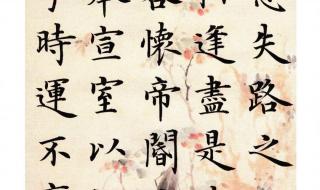 失路之
逢盡是
懷帝閽
奉宣室以
時運不